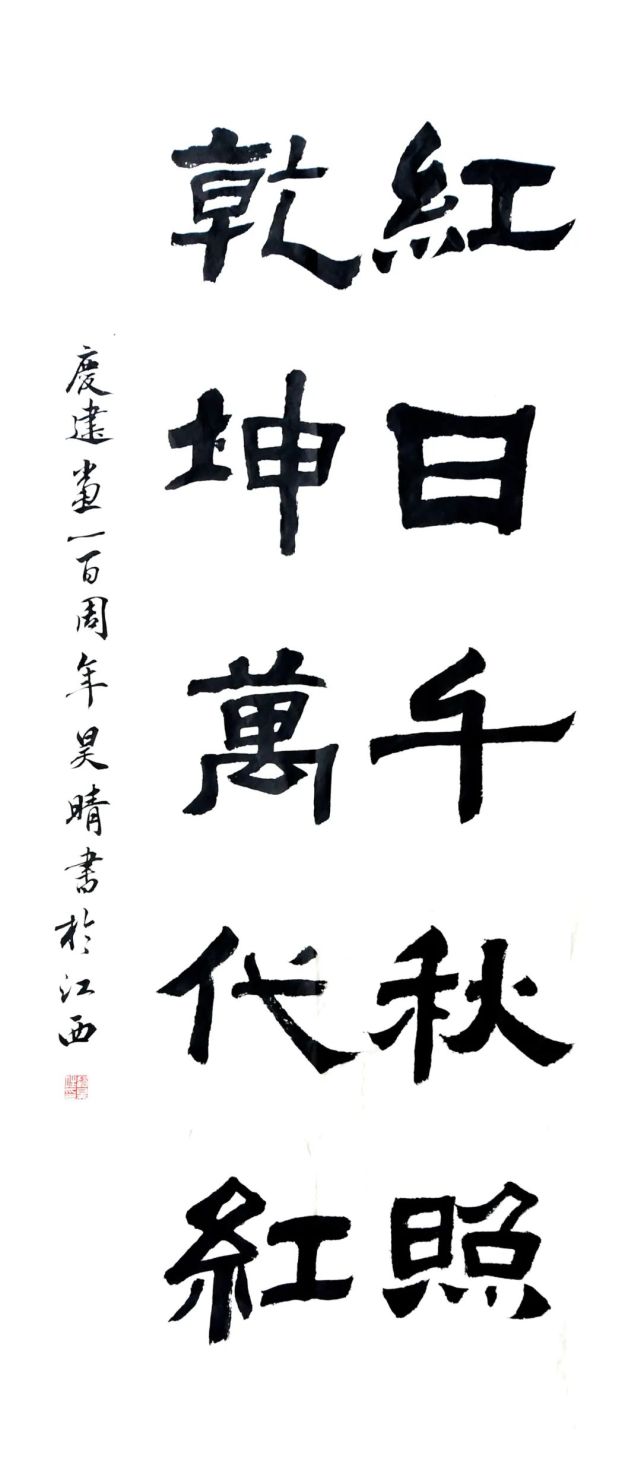 紅日千秋照
乾坤萬代紅
慶建黨一百周年昊晴書於江西